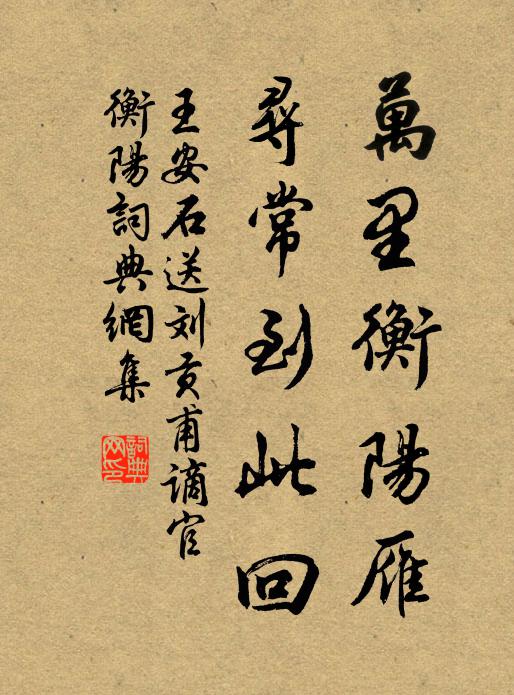 萬里衡陽雁
尋常到此回
王安石送刘贡甫谪官
衡陽詞典網集
詞典网印